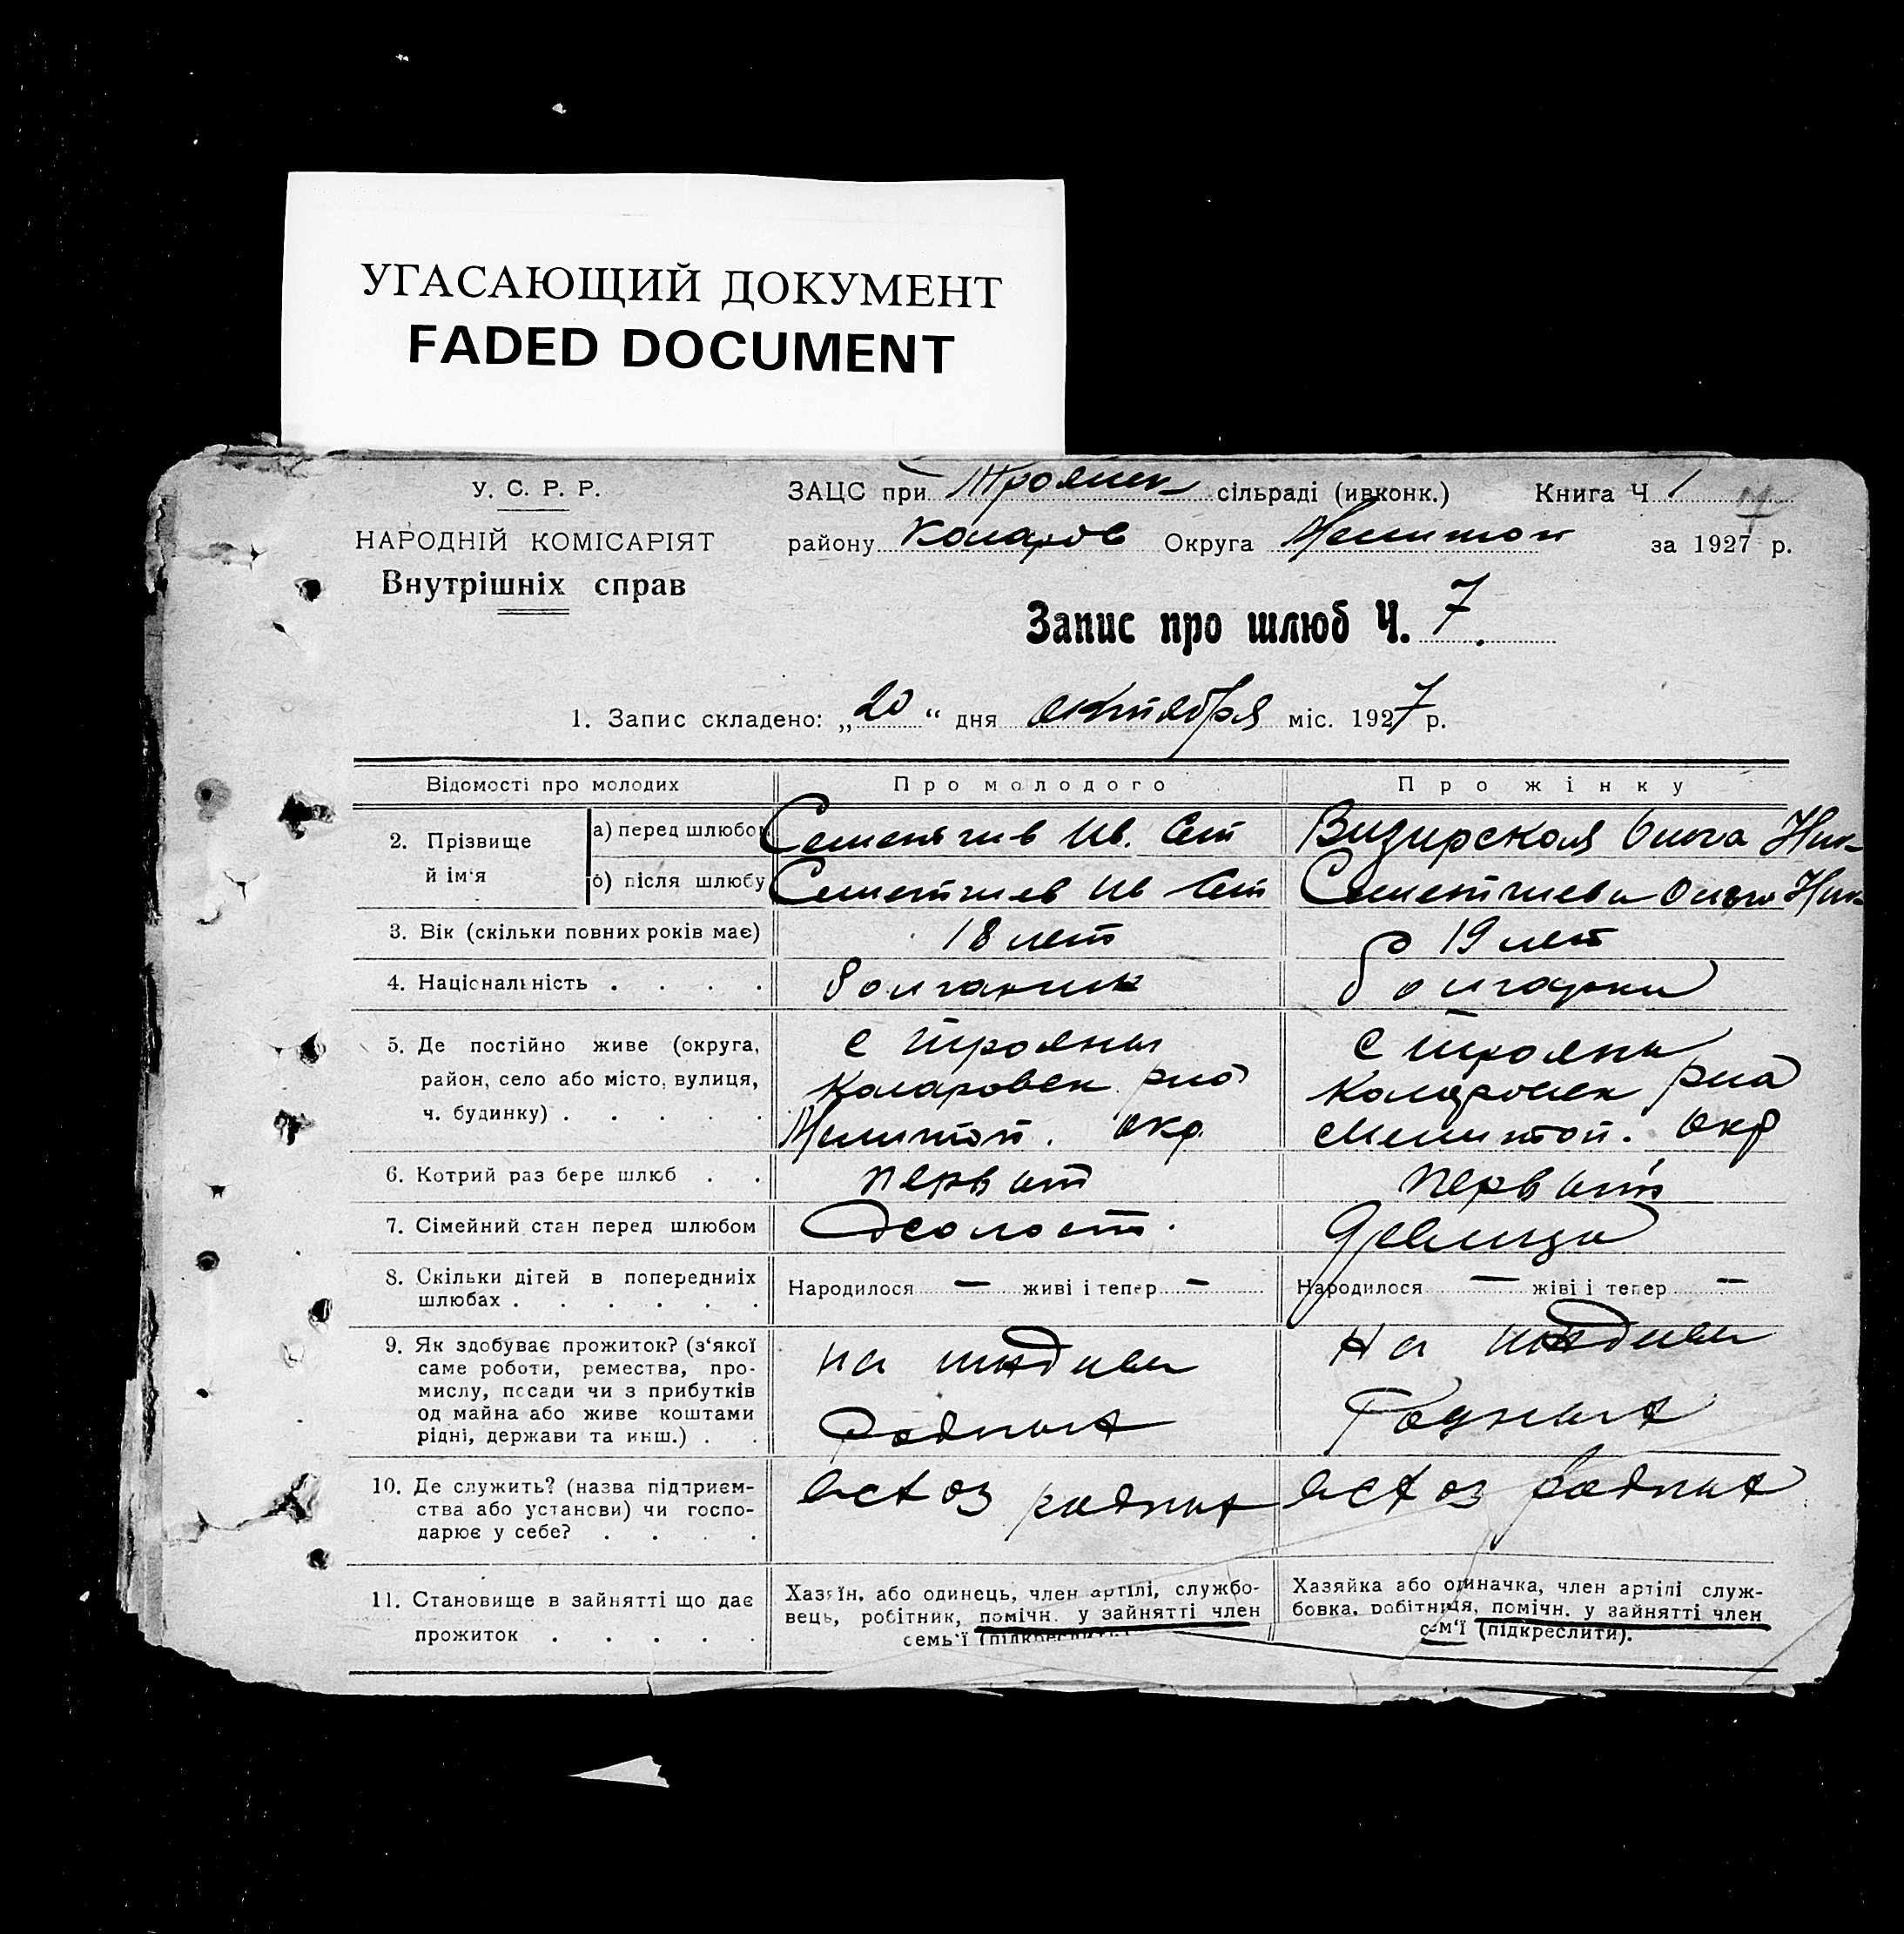 УГАСАЮЩИЙ ДОКУМЕНТ
FADED DOCUMENT
У. С. Р. Р.
НАРОДНІЙ КОМІСАРІЯТ
Внутрішніх справ
ЗАЦС при Троянск сільраді (ивконк.) Книга Ч 1
району Коларов Округа Мелитоп за 1927 р.
Запис про шлюб Ч. 7.
1. Запис складено: „20“ дня октября міс. 1927 р.
Відомості про молодих
Про молодого
Про жінку
2. Прізвище й ім'я
а) перед шлюбом
Ив.
Визирская Ольга Ник
б) після шлюбу
Ив
Ольга Ник
3. Вік (скільки повних років має)
18 лет
19 лет
4. Національність . . . .
болгарин
болгарка
5. Де постійно живе (округа,
район, село або місто, вулиця,
ч. будинку) . . . . .
с Трояны
Коларовск р-на
Мелитоп. окр.
с Трояны
Коларовск р-на
Мелитоп. окр
6. Котрий раз бере шлюб . .
первый
первый
7. Сімейний стан перед шлюбом
холост.
девица
8. Скільки дітей в попередніх
шлюбах . . . . . .
Народилося — живі і тепер —
Народилося — жіві і тепер —
9. Як здобуває прожиток? (з'якої
саме роботи, ремества, про-
мислу, посади чи з прибутків
од майна або живе коштами
рідні, держави та инш.) . .
на иждивен
родных
на иждивен
родных
10. Де служить? (назва підприєм-
ства або установи) чи госпо-
дарює у себе? . . . .
в с/хоз родных
в с/хоз родных
11. Становище в зайнятті що дає
прожиток . . . . .
Хазяїн, або одинець, член артілі, службо-
вець, робітник, помічн. у зайнятті член
семь'ї (підкреслити).
Хазяйка або одиначка, член артілі служ-
бовка, робітниця, помічн. у зайнятті член
сем'ї (підкреслити).